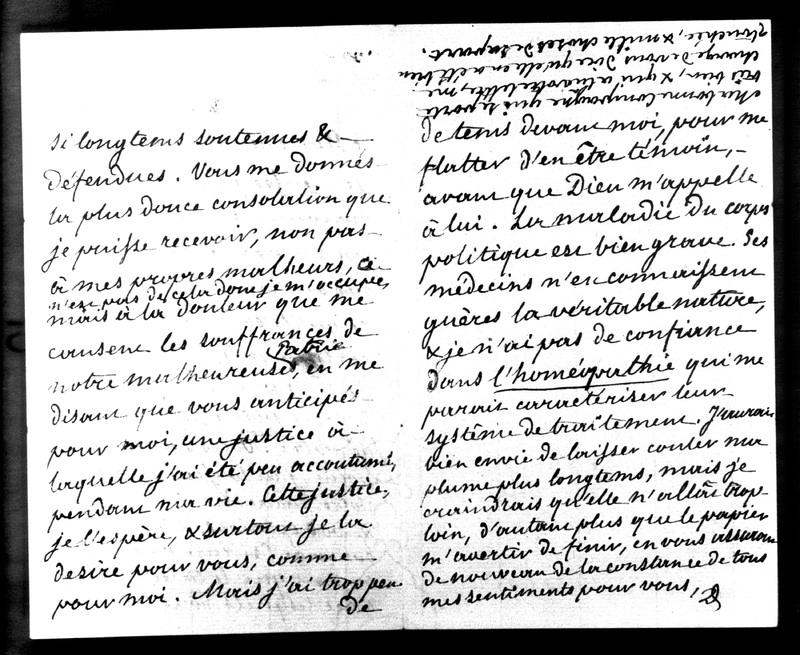 si longtems soutenues &
défendues. Vous me donnés
la plus douce consolation que
je puisse recevoir, non pas
à mes propres malheurs, ce
n'est pas de cela dont je m'occupe,
mais à la douleur que me
causent les souffrances de
notre malheureuse Patrie, en me
disant que vous anticipés
pour moi, une justice à
laquelle j'ai été peu accoutumé,
pendant ma vie. Cette justice,
je l'espère, & surtout je la
desire pour vous, comme
pour moi. Mais j'ai trop peu
de
de tems devant moi, pour me
flatter d'en être témoin,
avant que Dieu m'appelle
à lui. La maladie du corps
politique est bien grave. Ses
médecins n'en connaissent
guères la véritable nature,
& je n'ai pas de confiance
dans l'homéopathie qui me
parait caractériser leur
système de traitement. J'aurais
bien envie de laisser couler ma
plume plus longtems, mais je
craindrais qu'elle n'allât trop
loin, d'autant plus que le papier
m'avertit de finir, en vous assurant
de nouveau de la constance de tous
mes sentiments pour vous, &
ma bonne compagne qui se porte
très bien, & qui a lu votre lettre, me
charge de vous dire qu'elle en a été bien
touchée, & mille choses de sa part.